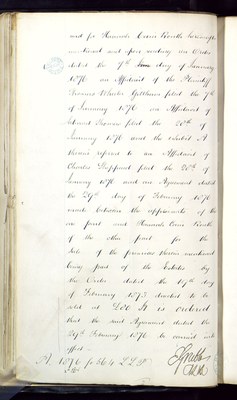 and for Hannah Cave
mentioned and upon reading an Order
dated the 9th day of January
1876 an Affidavit of the Plaintiff
Thomas filed the 7th
of January 1876 an Affidavit of
Edward filed the 20th of
January 1876 and the exhibit A
therein referred to an Affidavit of
Charles filed the 26th of
January 1876 and an Agreement dated
the 29th day of February 1876
made between the of the
one part and Hannah Cave
of the other part for the
Sale of the premises therein mentioned
being part of the Estates by
the Order dated the 19th day
of February 1875 directed to be
sold at Doo It is ordered
that the said Agreement dated the
29th February 1876 be carried into
effect
A. 1876